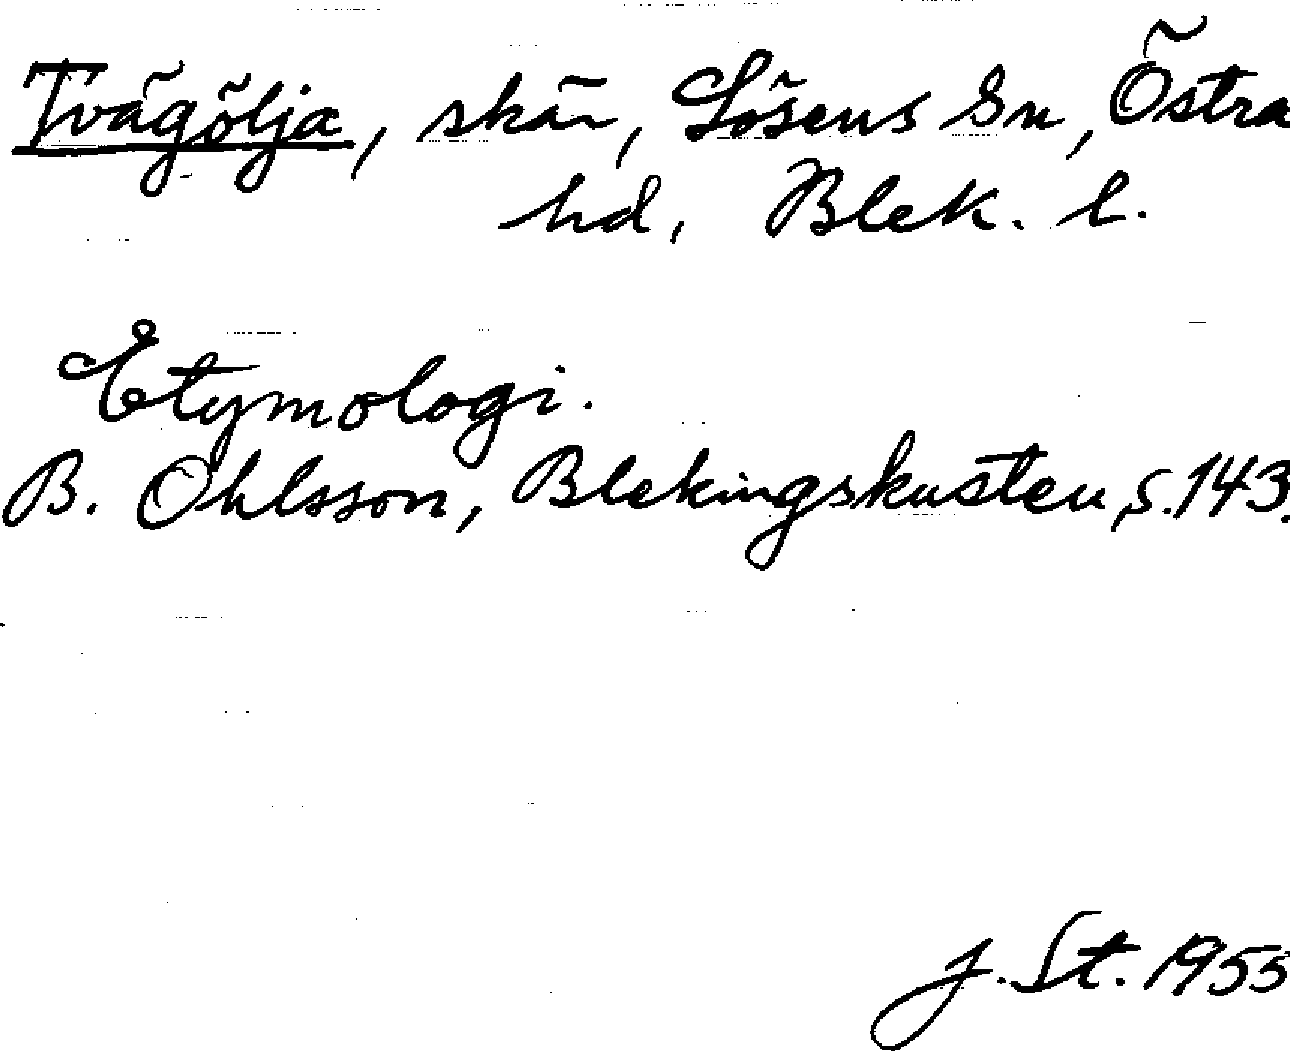 Tvägölja, skär, Lösens sn, Östra
hd, Blek. l.
Etymologi.
B. Ohlsson, Blekingskusten, s. 143.
J. St. 1955